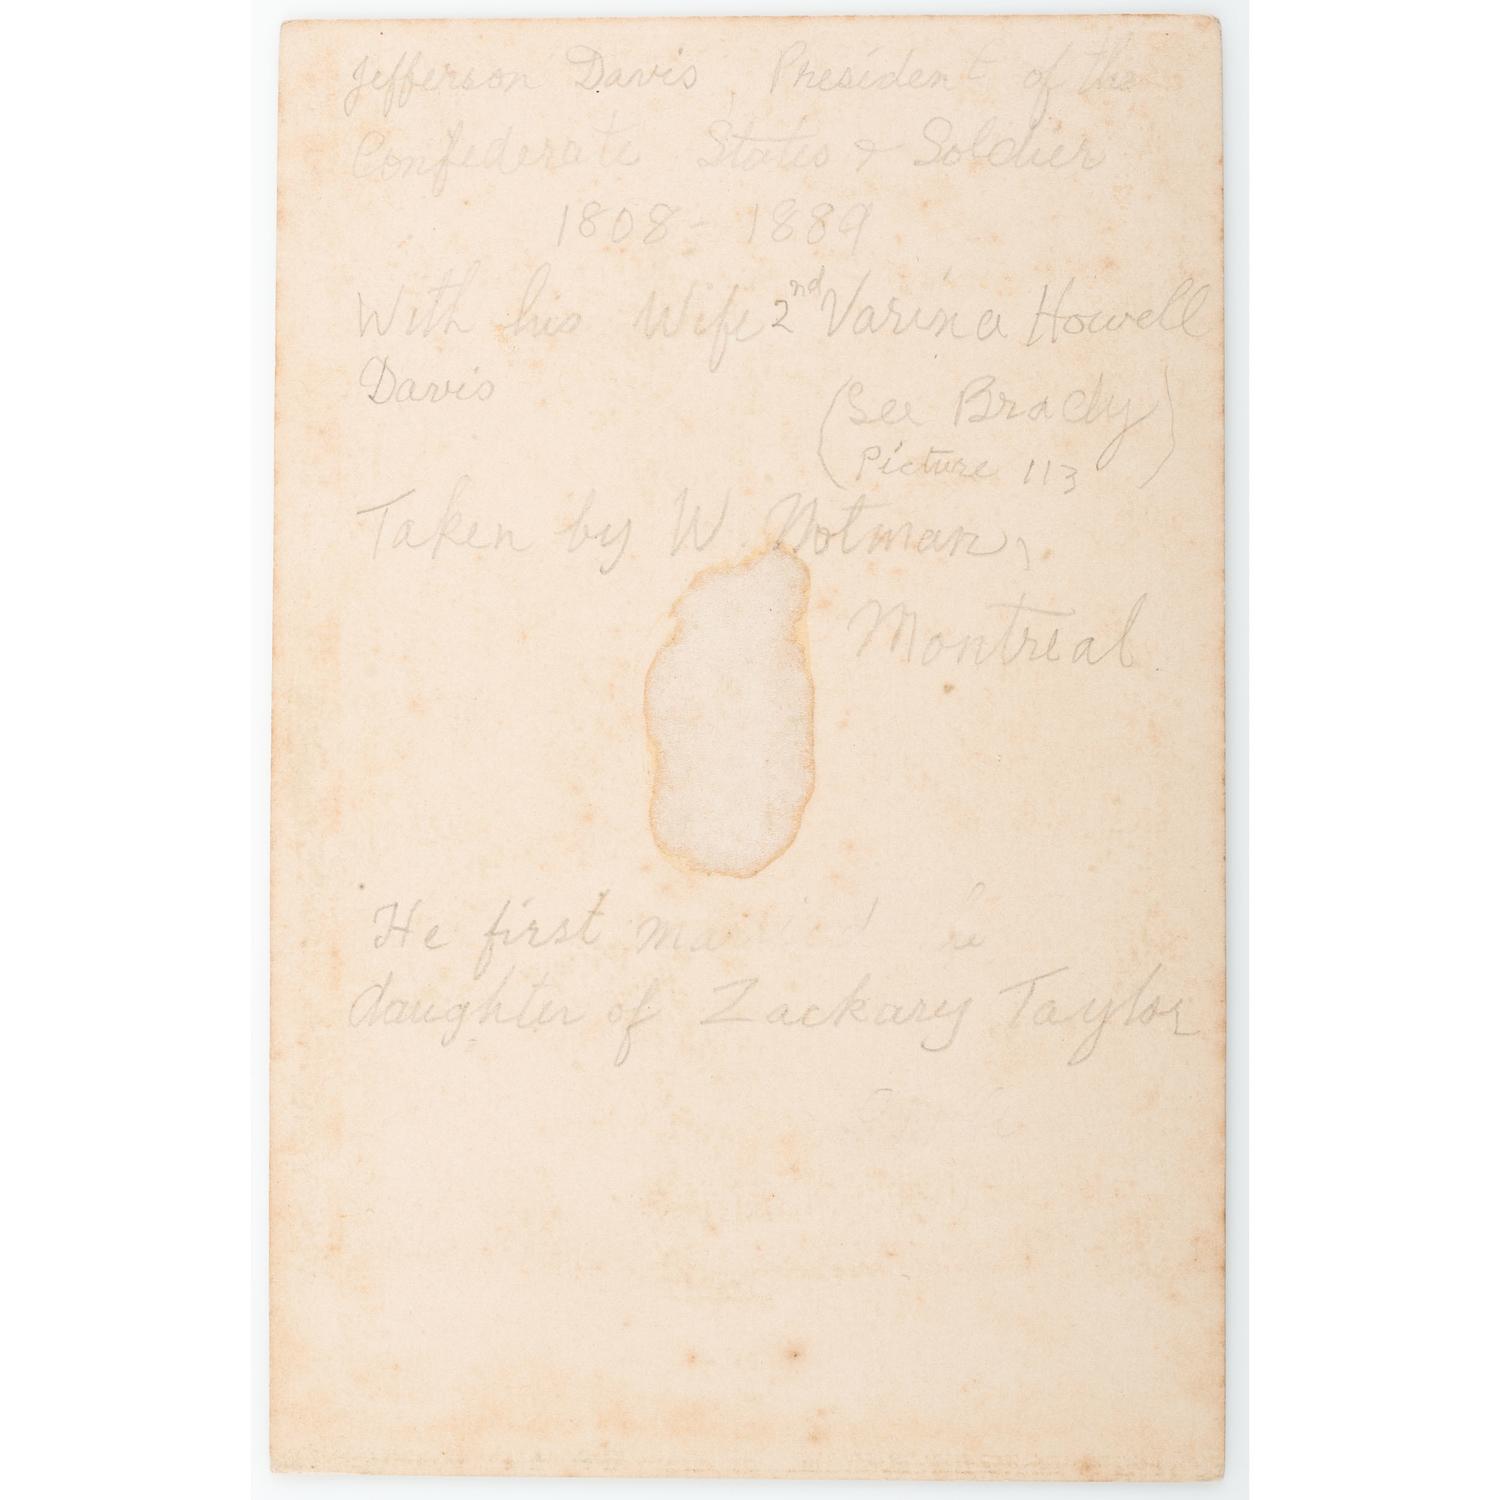 Jefferson Davis, President of the
Confederate States & Soldier
1808 - 1889
With his Wife 2nd Varina Howell
Davis
(See Brady
Picture 113)
Taken by W. Notman,
Montreal.
He first married the
daughter of Zackary Taylor